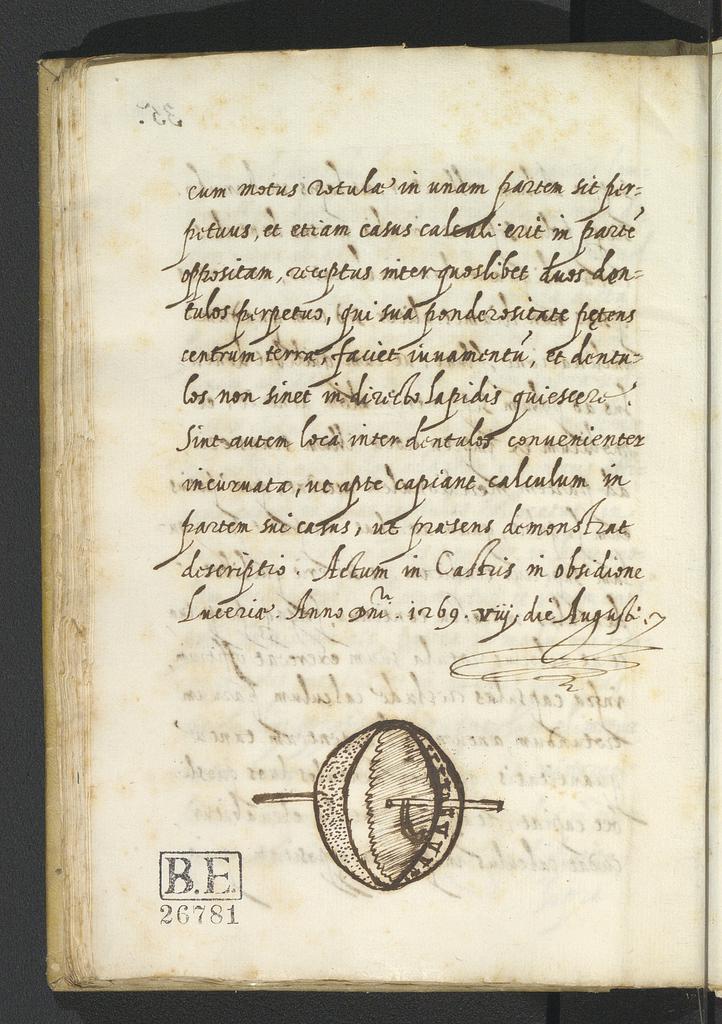 cum motus rotulæ in unam partem sit per=
petuus, et etiam casus calculi erit in partē
oppositam, receptus inter quoslibet duos den=
tulos perpetuo, qui sua ponderositate pętens
centrum terræ, faciet iuvamentū, et dentu=
los non sinet in directo lapidis quiescere.
Sint autem loca inter dentulos convenienter
incurvata, ut apte capiant calculum in
partem sui casus, ut præsens demonstrat
descriptio. Actum in Castris in obsidione
Luceriæ. Anno Dñi. 1269. viij. die Augusti.
B.E.
26781